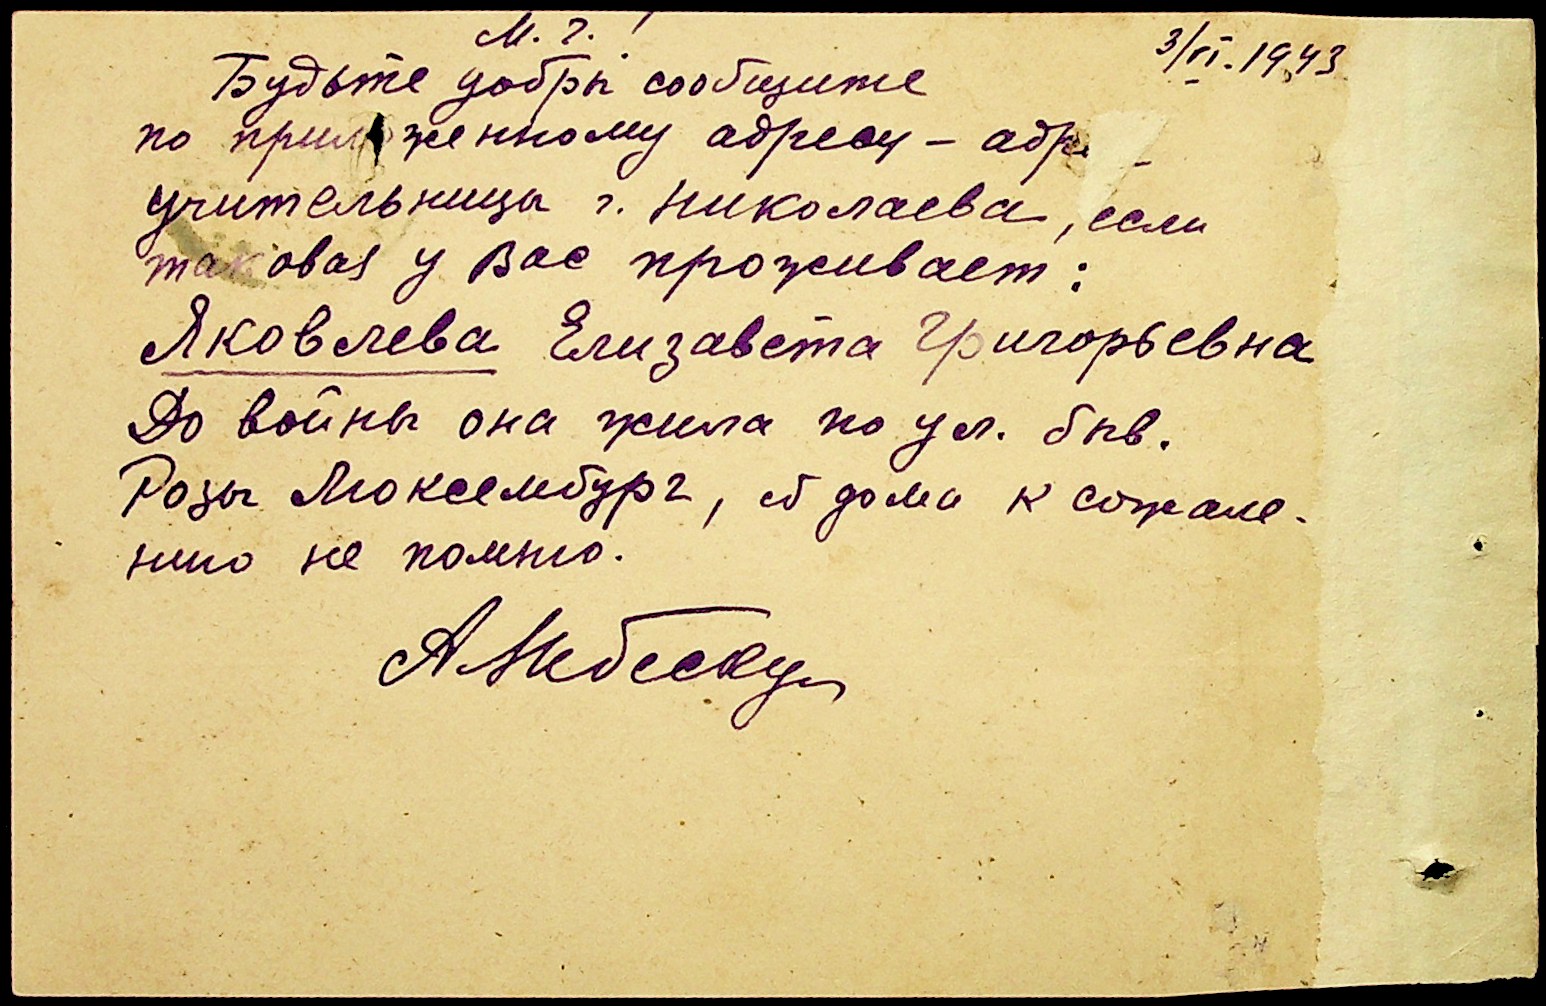 М. г.!
3/VI. 1943
Будьте добры сообщите
по приложенному адресу – адре
учительницы г. Николаева, если
таковая у Вас проживает:
Яковлева Елизавета Григорьевна
До войны она жила по ул. быв.
Розы Люксембург, № дома к сожале-
нию не помню.